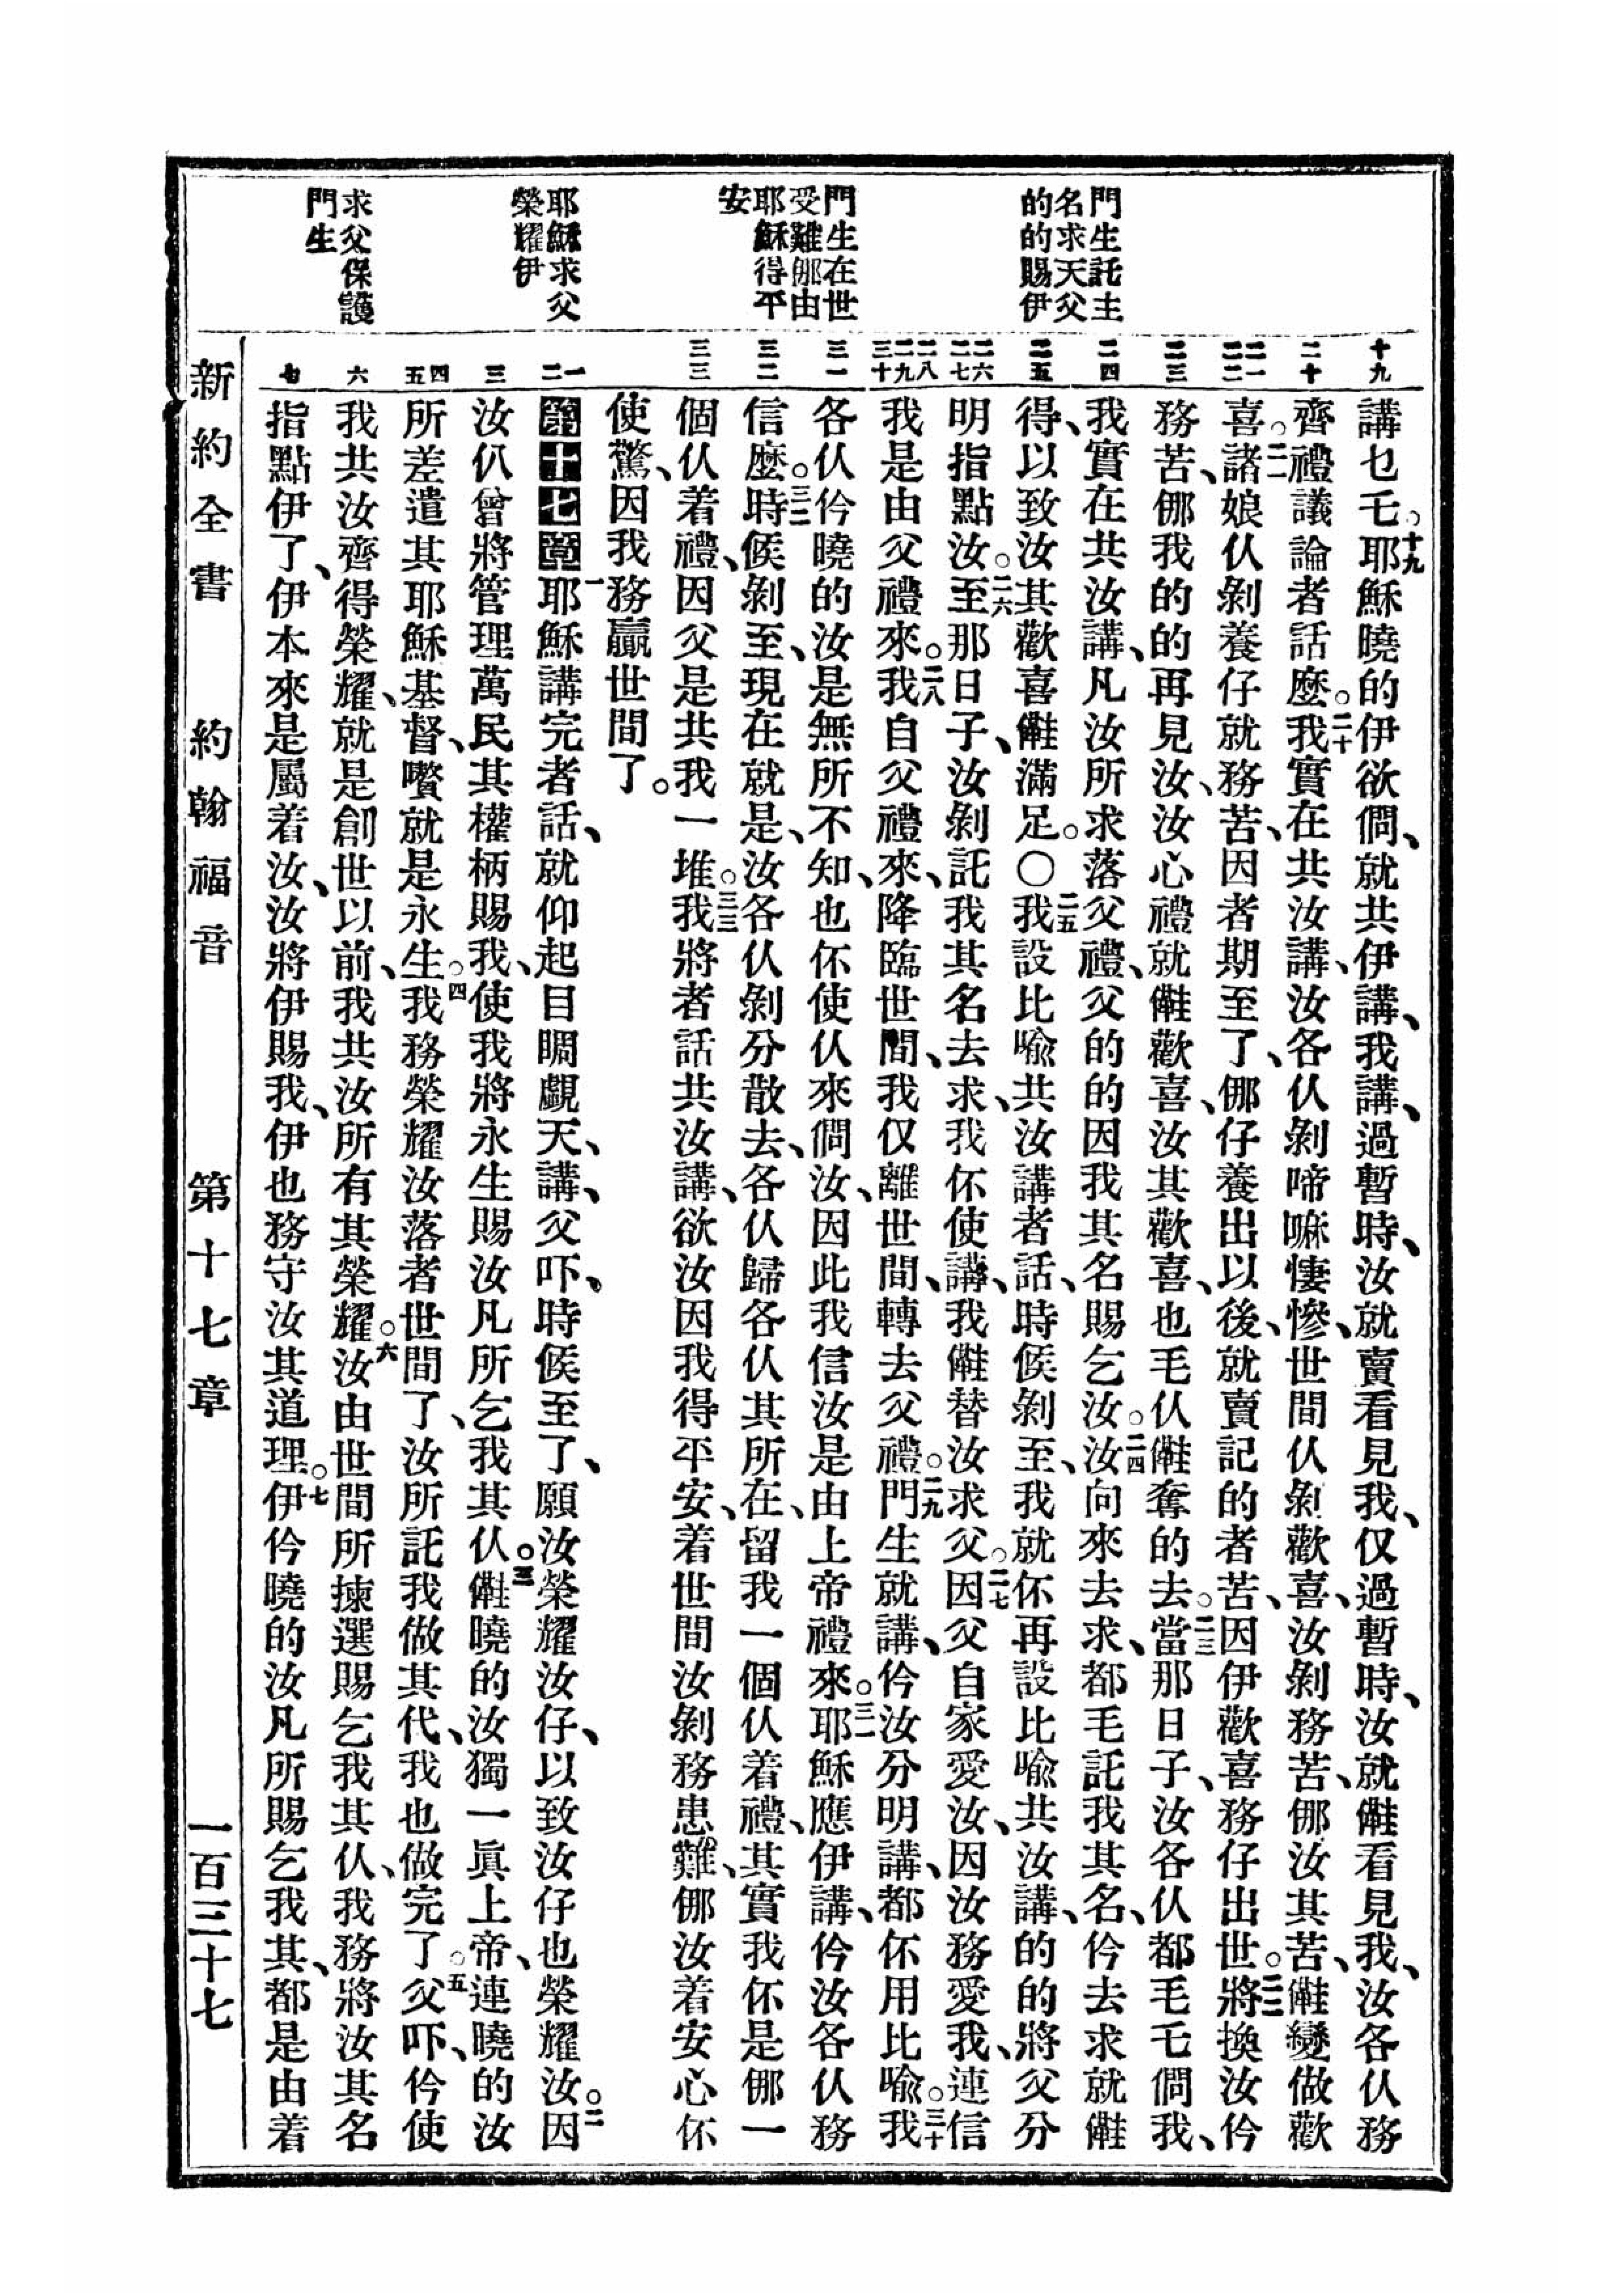 門生託主
名求天父
的的賜伊
門生在世
受難㑚由
耶穌得平
安
耶穌求父
榮耀伊
求父保護
門生
十九
二十
二一
二二
二三
二四
二五
二六
二七
二八
二九
三十
三一
三二
三三
一
二
三
四
五
六
七
講乜乇。十九耶穌曉的伊欲倜、就共伊講、我講、過暫時、汝就賣看見我、仅過暫時、汝就𠎝看見我、汝各仈務
齊禮議論者話麽。二十我實在共汝講、汝各仈剝啼嘛悽慘、世間仈剝歡喜、汝剝務苦、㑚汝其苦、𠎝變做歡
喜。二一諸娘仈剝養仔就務苦、因者期至了、㑚仔養出以後、就賣記的者苦、因伊歡喜務仔出世。二二將換汝仱
務苦、㑚我的的再見汝、汝心禮就𠎝歡喜、汝其歡喜、也毛仈𠎝奪的去。二三當那日子、汝各仈都毛乇倜我、
我實在共汝講、凡汝所求落父禮、父的的因我其名賜乞汝。二四汝向來去求、都毛託我其名、仱去求就𠎝
得、以致汝其歡喜𠎝滿足。〇二五我設比喻共汝講者話、時候剝至、我就伓再設比喻共汝講、的的將父分
明指點汝。二六至那日子、汝剝託我其名去求、我伓使講、我𠎝替汝求父。二七因父自家愛汝、因汝務愛我、連信
我是由父禮來。二八我自父禮來、降臨世間、我仅離世間、轉去父禮。二九門生就講、仱汝分明講、都伓用比喻。三十我
各仈仱曉的汝是無所不知、也伓使仈來倜汝、因此我信汝是由上帝禮來。三一耶穌應伊講、仱汝各仈務
信麽。三二時候剝至、現在就是、汝各仈剝分散去、各仈歸各仈其所在、留我一個仈着禮、其實我伓是㑚一
個仈着禮、因父是共我一堆。三三我將者話共汝講、欲汝因我得平安、着世間汝剝務患難、㑚汝着安心伓
使驚、因我務贏世間了。
第十七章一耶穌講完者話、就仰起目睭覷天、講、父吓、時候至了、願汝榮耀汝仔、以致汝仔也榮耀汝。二因
汝仈曾將管理萬民其權柄賜我、使我將永生賜汝凡所乞我其仈。三𠎝曉的汝獨一眞上帝、連曉的汝
所差遣其耶穌基督、嚽就是永生。四我務榮耀汝落者世間了、汝所託我做其代、我也做完了。五父吓、仱使
我共汝齊得榮耀、就是創世以前、我共汝所有其榮耀。六汝由世間所揀選賜乞我其仈、我務將汝其名
指點伊了、伊本來是屬着汝、汝將伊賜我、伊也務守汝其道理。七伊仱曉的汝凡所賜乞我其、都是由着
新約全書　約翰福音　第十七章　一百三十七